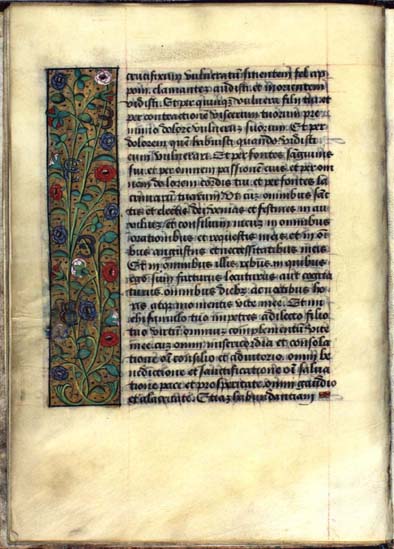 crucifixum vulneratum sitientem fel ap
poni. clamantez audisti. et morientem
vidisti. Et per quinqz vulnera filii tui et
per contractione viscerum tuorum pre
nimio dolore vulnerum suorum. Et per
dolorem quem habuisti quando vidisti
eum vulnerari. Et per fontes sanguinis
sui. et per omnem passione eius. et per om
nem dolorem cordis tui. et per fontes la
crimarum tuarum. Ut cum omnibus sanc
tis et electis dei venias et festines in au
xilium et consilium meum in omnibus
orationibus et requestis meis. et in om
bus angustiis et necessitatibus meis.
Et in omnibus illis rebus. in quibus
ego sum facturus locuturus aut cogita
turus. omnibus diebz ac noctibus ho
ris atqz momentis vite mee. Et mi
chi famulo tuo impetres a dilecto filio
tuo virtutum omnium complementum vite
mee. cuz omni misericordia et consola
tione omni consilio et adiutorio. omni be
nedictione et sanctificatione omni salua
tione pace et prosperitate. omni gaudio
et alacritate. Etiaz habundantiam